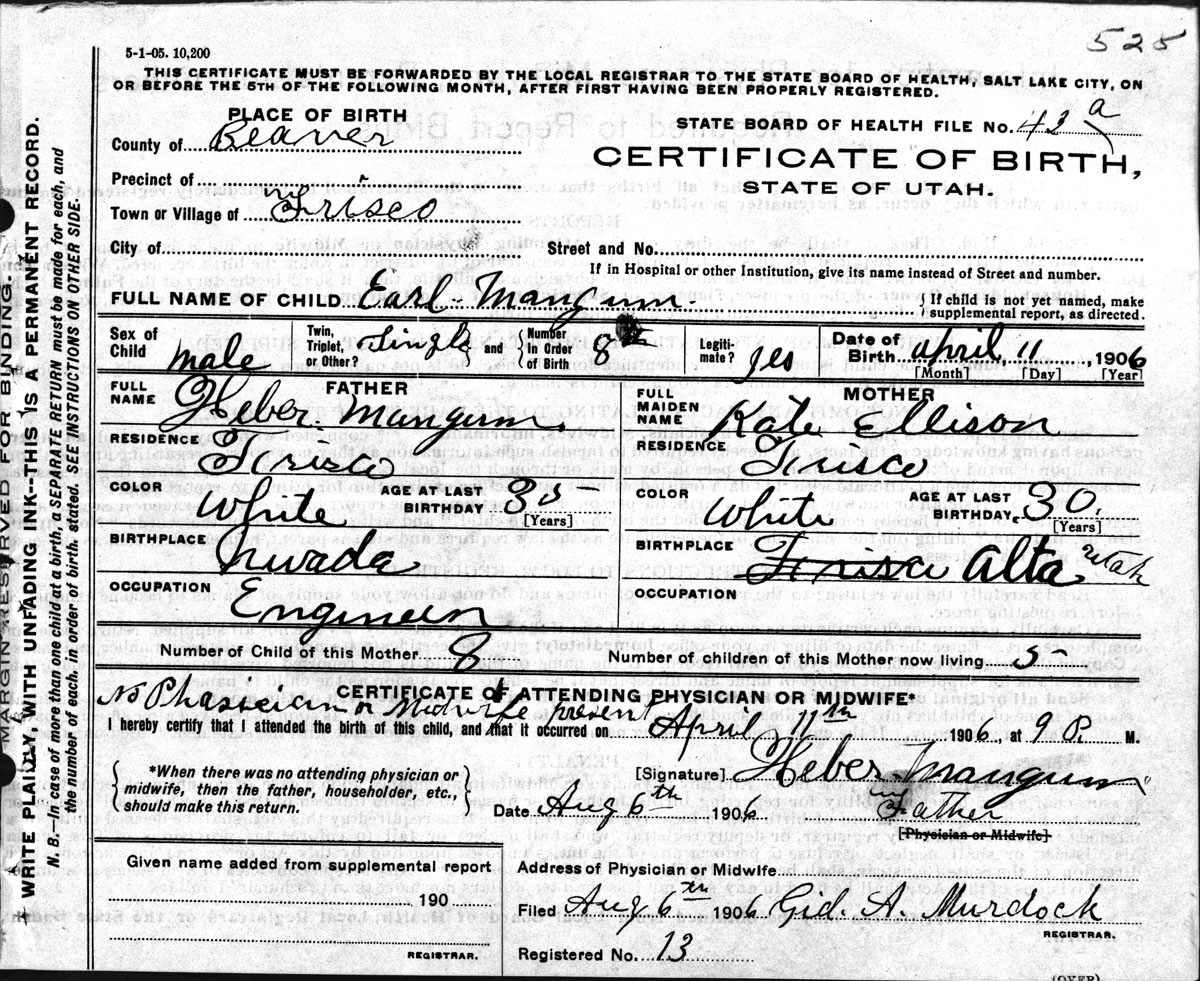 525
5-1-05. 10,200
THIS CERTIFICATE MUST BE FORWARDED BY THE LOCAL REGISTRAR TO THE STATE BOARD OF HEALTH, SALT LAKE CITY, ON
OR BEFORE THE 5TH OF THE FOLLOWING MONTH, AFTER FIRST HAVING BEEN PROPERLY REGISTERED.
PLACE OF BIRTH
County of Beaver
Precinct of "
Town or Village of Frisco
City of
STATE BOARD OF HEALTH FILE No. 43 a
CERTIFICATE OF BIRTH,
STATE OF UTAH.
Street and No.
If in Hospital or other Institution, give its name instead of Street and number.
FULL NAME OF CHILD Earl Mangum. { If child is not yet named, make supplemental report, as directed.
Sex of Child male Twin, Triplet, or Other? Single and Number In Order of Birth 8th Legitimate? yes Date of Birth april, 11, 1906
[Month] [Day] [Year]
FATHER
FULL NAME Heber Mangum.
RESIDENCE Frisco
COLOR White AGE AT LAST BIRTHDAY 35
[Years]
BIRTHPLACE Nevada
OCCUPATION Engineer
MOTHER
FULL MAIDEN NAME Kate Ellison
RESIDENCE Frisco
COLOR White AGE AT LAST BIRTHDAY 30.
[Years]
BIRTHPLACE Frisco Alta Utah
OCCUPATION
Number of Child of this Mother 8 Number of children of this Mother now living 5
CERTIFICATE OF ATTENDING PHYSICIAN OR MIDWIFE*
No Phasician or Midwife present
I hereby certify that I attended the birth of this child, and that it occurred on April 11th 1906, at 9 P. M.
*When there was no attending physician or
midwife, then the father, householder, etc.,
should make this return.
[Signature] Heber Mangum
Date Aug 6th 1906 Father
[Physician or Midwife]
Given name added from supplemental report
190
REGISTRAR.
Address of Physician or Midwife
Filed Aug 6th 1906 Geo. A. Murdock
REGISTRAR.
Registered No. 13
(OVER)
MARGIN RESERVED FOR BINDING.
WRITE PLAINLY, WITH UNFADING INK---THIS IS A PERMANENT RECORD.
N. B.—In case of more than one child at a birth, a SEPARATE RETURN must be made for each, and
the number of each, in order of birth, stated. SEE INSTRUCTIONS ON OTHER SIDE.